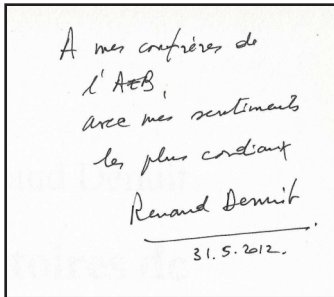 A mes confrères de
l'AEB,
avec mes sentiments
les plus cordiaux
Renaud Denuit
31.5.2012.